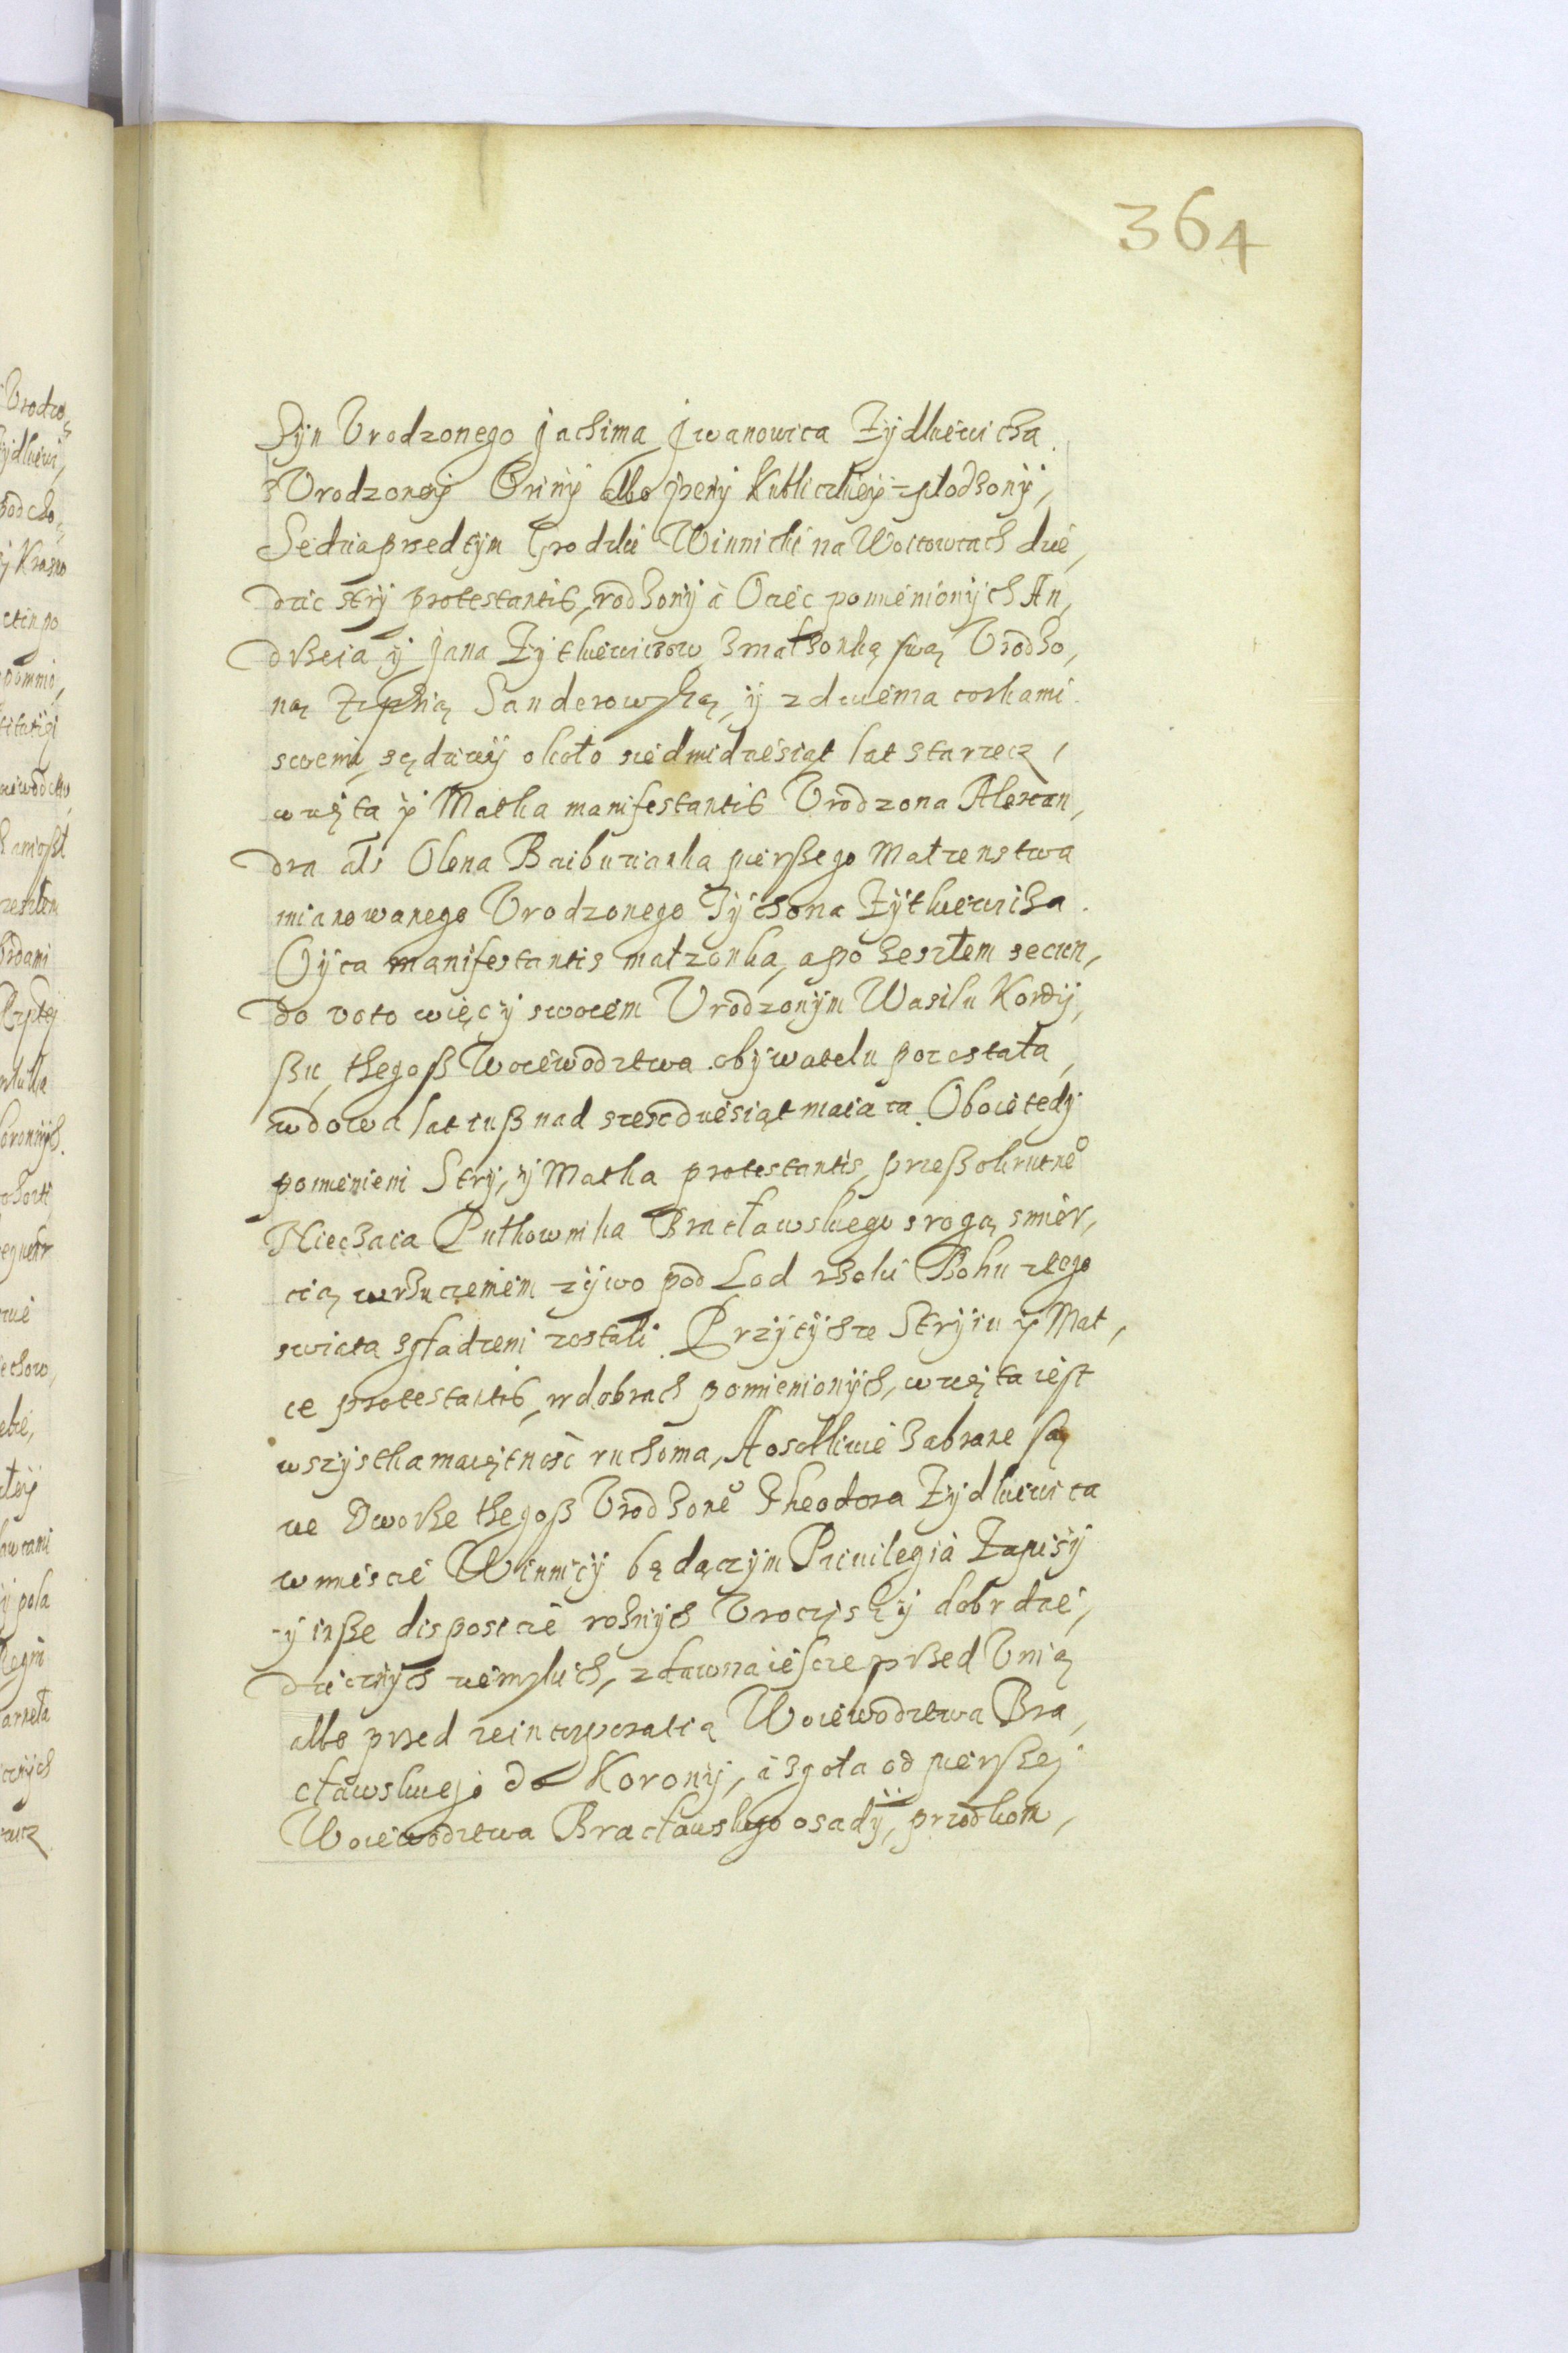 364
Syn Vrodzonego Jachima Jwanowica Żydkiewicza
z Vrodzonej Oriny albo Jreny Kubliczkiey zpłodzony,
Sedzia przedtym Grodzki Winnicki na Woitowcach dzie,
dzic stry protestantis, rodzony a Ociec pomienionych An,
drzeia y Jana Żytkiewiczow z małzonką swą Vrodzo,
ną Sanderowską, y z dwiema corkami
swemi, sędziwy około siedmidziesiąt lat starzec,
wzięta y Matka manifestantis Vrodzona Alexan,
dra als Olena Baibuzianka pierszego Małzenstwa
mianowanego Vrodzonego Tychona Żytkiewicza
Oyca manifestantis małzonka, a po zeszłem secun,
do voto więcy swoiem Vrodzonym Wasilu Kordy,
szu, thegosz Woiewodztwa obywatelu pozostała
wdowa lat iusz nad szescdziesiąt maiąca. Oboie tedy
pomienieni Stry, y Matka protestantis, przesz okrutne°
Nieczaia Pułkownika Bracławskiego srogą smier,
cią, wrzuczeniem zywo pod Lod rzeki Bohu z tego
swiata zgładzeni zostali. Przy tychze Stryiu y Mat,
ce protestantis, w dobrach pomienionych, wzięta iest
wszystka maiętność ruchoma, A osobliwie zabrane są
we Dworze thegosz Vrodzone° Theodora Żydkiewica
w miescie Winnicy będączym Priuilegia Zapisy
y insze disposicie roznych Vroczysk y dobr dzie,
dzicznych ziemskich, z dawna ieszcze przed Vnią
albo przed reincorporatią Woiewodztwa Bra,
cławskiego do Korony, a zgoła od pierszej
Woiewodztwa Bracławskiego osady, przodkom,